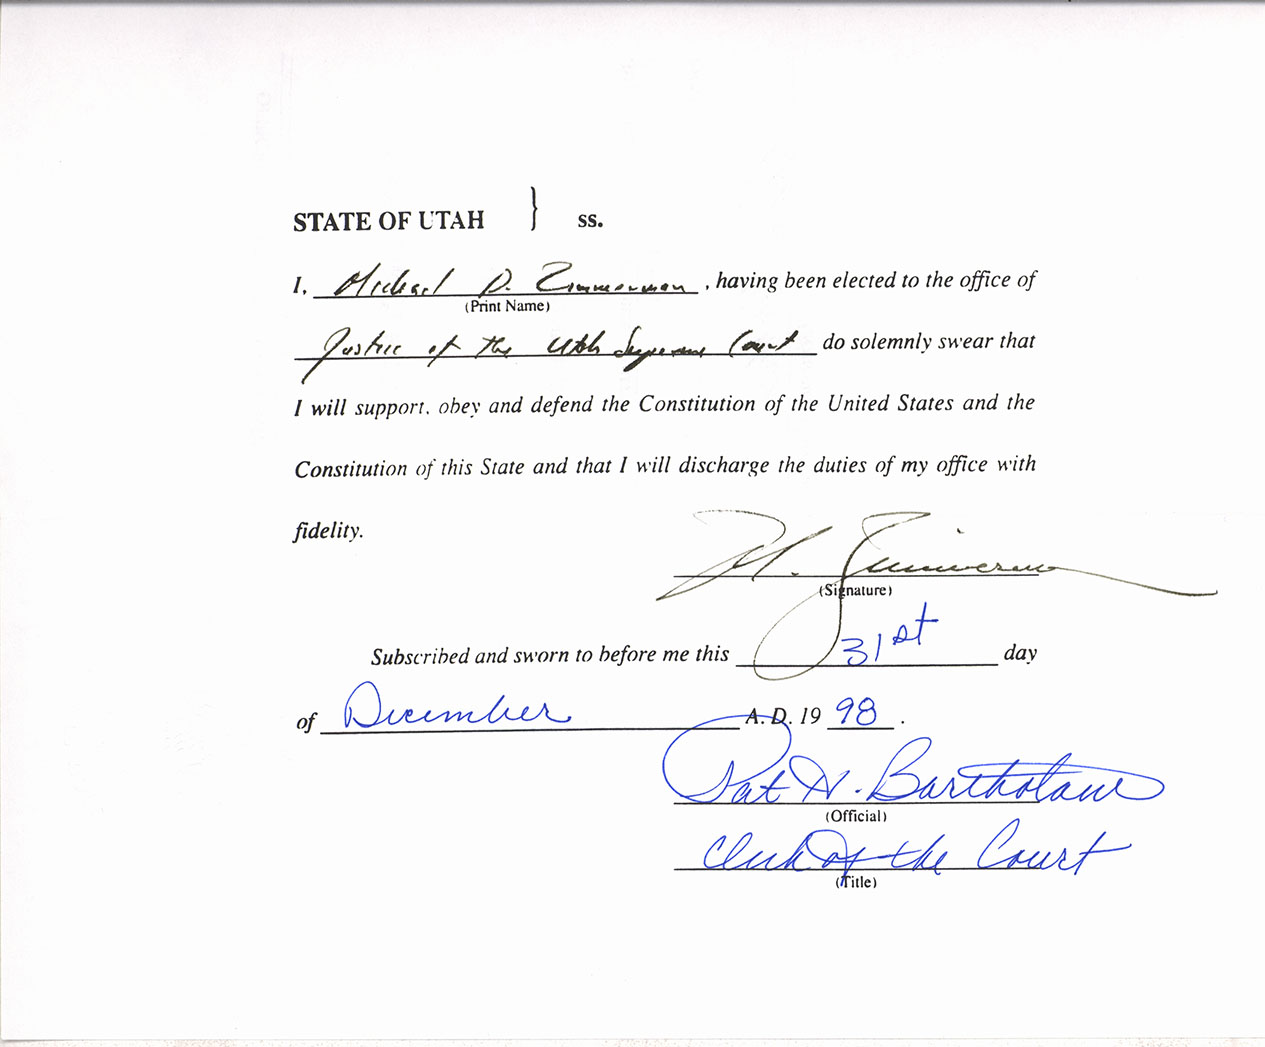 STATE OF UTAH } ss.
I, Michael D. Zimmerman, having been elected to the office of
(Print Name)
Justice of the Utah Supreme Court do solemnly swear that
I will support, obey and defend the Constitution of the United States and the
Constitution of this State and that I will discharge the duties of my office with
fidelity.
M. Zimmerman
(Signature)
Subscribed and sworn to before me this 31st day
of December A.D. 19 98.
Pat H. Bartholomew
(Official)
Clerk of the Court
(Title)